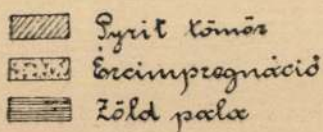 Pyrit tömör
Ércimpregnáció
Zöld pala